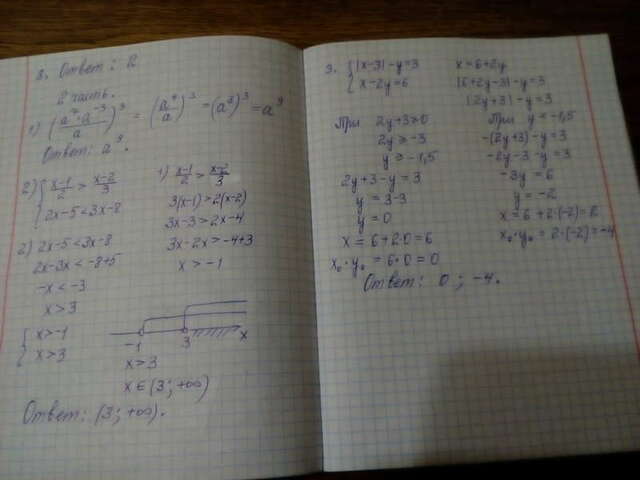 8. Ответ: 2
2 часть.
1) (a⁷·a⁻³/a)³ = (a⁴/a)³ = (a³)³ = a⁹
Ответ: a⁹.
2) { x-1/2 > x-2/3
2x-5<3x-8
1) x-1/2 > x-2/3
3(x-1)>2(x-2)
3x-3>2x-4
3x-2x>-4+3
x>-1
2) 2x-5<3x-8
2x-3x<-8+5
-x<-3
x>3
{ x>-1
x>3
-1 3 x
x>3
x∈(3;+∞)
Ответ: (3;+∞).
3. { |x-3|-y=3
x-2y=6
x=6+2y
|6+2y-3|-y=3
|2y+3|-y=3
При 2y+3≥0
2y≥-3
y≥-1,5
2y+3-y=3
y=3-3
y=0
x=6+2·0=6
x₀·y₀=6·0=0
При y=-1,5
-(2y+3)-y=3
-2y-3-y=3
-3y=6
y=-2
x=6+2·(-2)=2
x₀·y₀=2·(-2)=-4
Ответ: 0; -4.